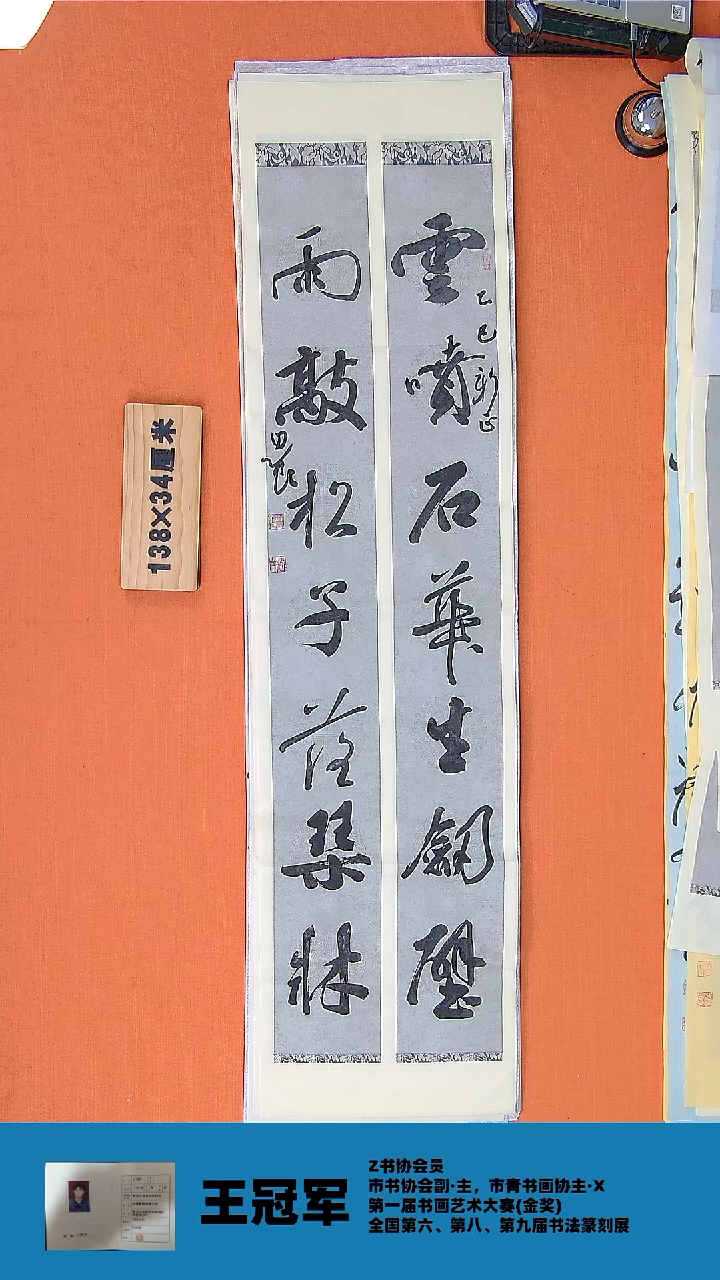 雲噴石華生劒壁
乙巳新正
雨敲松子落琴牀
138×34厘米
王冠军
Z书协会员
市书协会副·主，市青书画协主·X
第一届书画艺术大赛(金奖)
全国第六、第八、第九届书法篆刻展